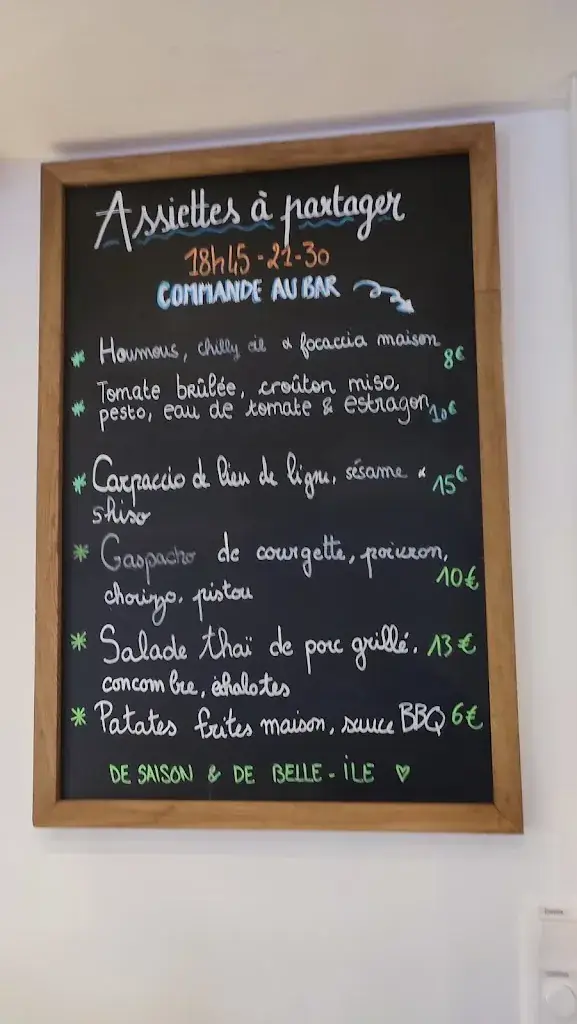 Assiettes à partager
18h45-21-30
COMMANDE AU BAR
* Houmous, chilly oil & focaccia maison 8€
Tomate brûlée, croûton miso,
* pesto, eau de tomate & estragon 10€
* Carpaccio de lieu de ligne, sésame & 15€
shiso
* Gaspacho de courgette, poivron,
chorizo, pistou 10€
* Salade thaï de porc grillé, 13€
concombre, échalotes
* Patates frites maison, sauce BBQ 6€
DE SAISON & DE BELLE-ÎLE ♡